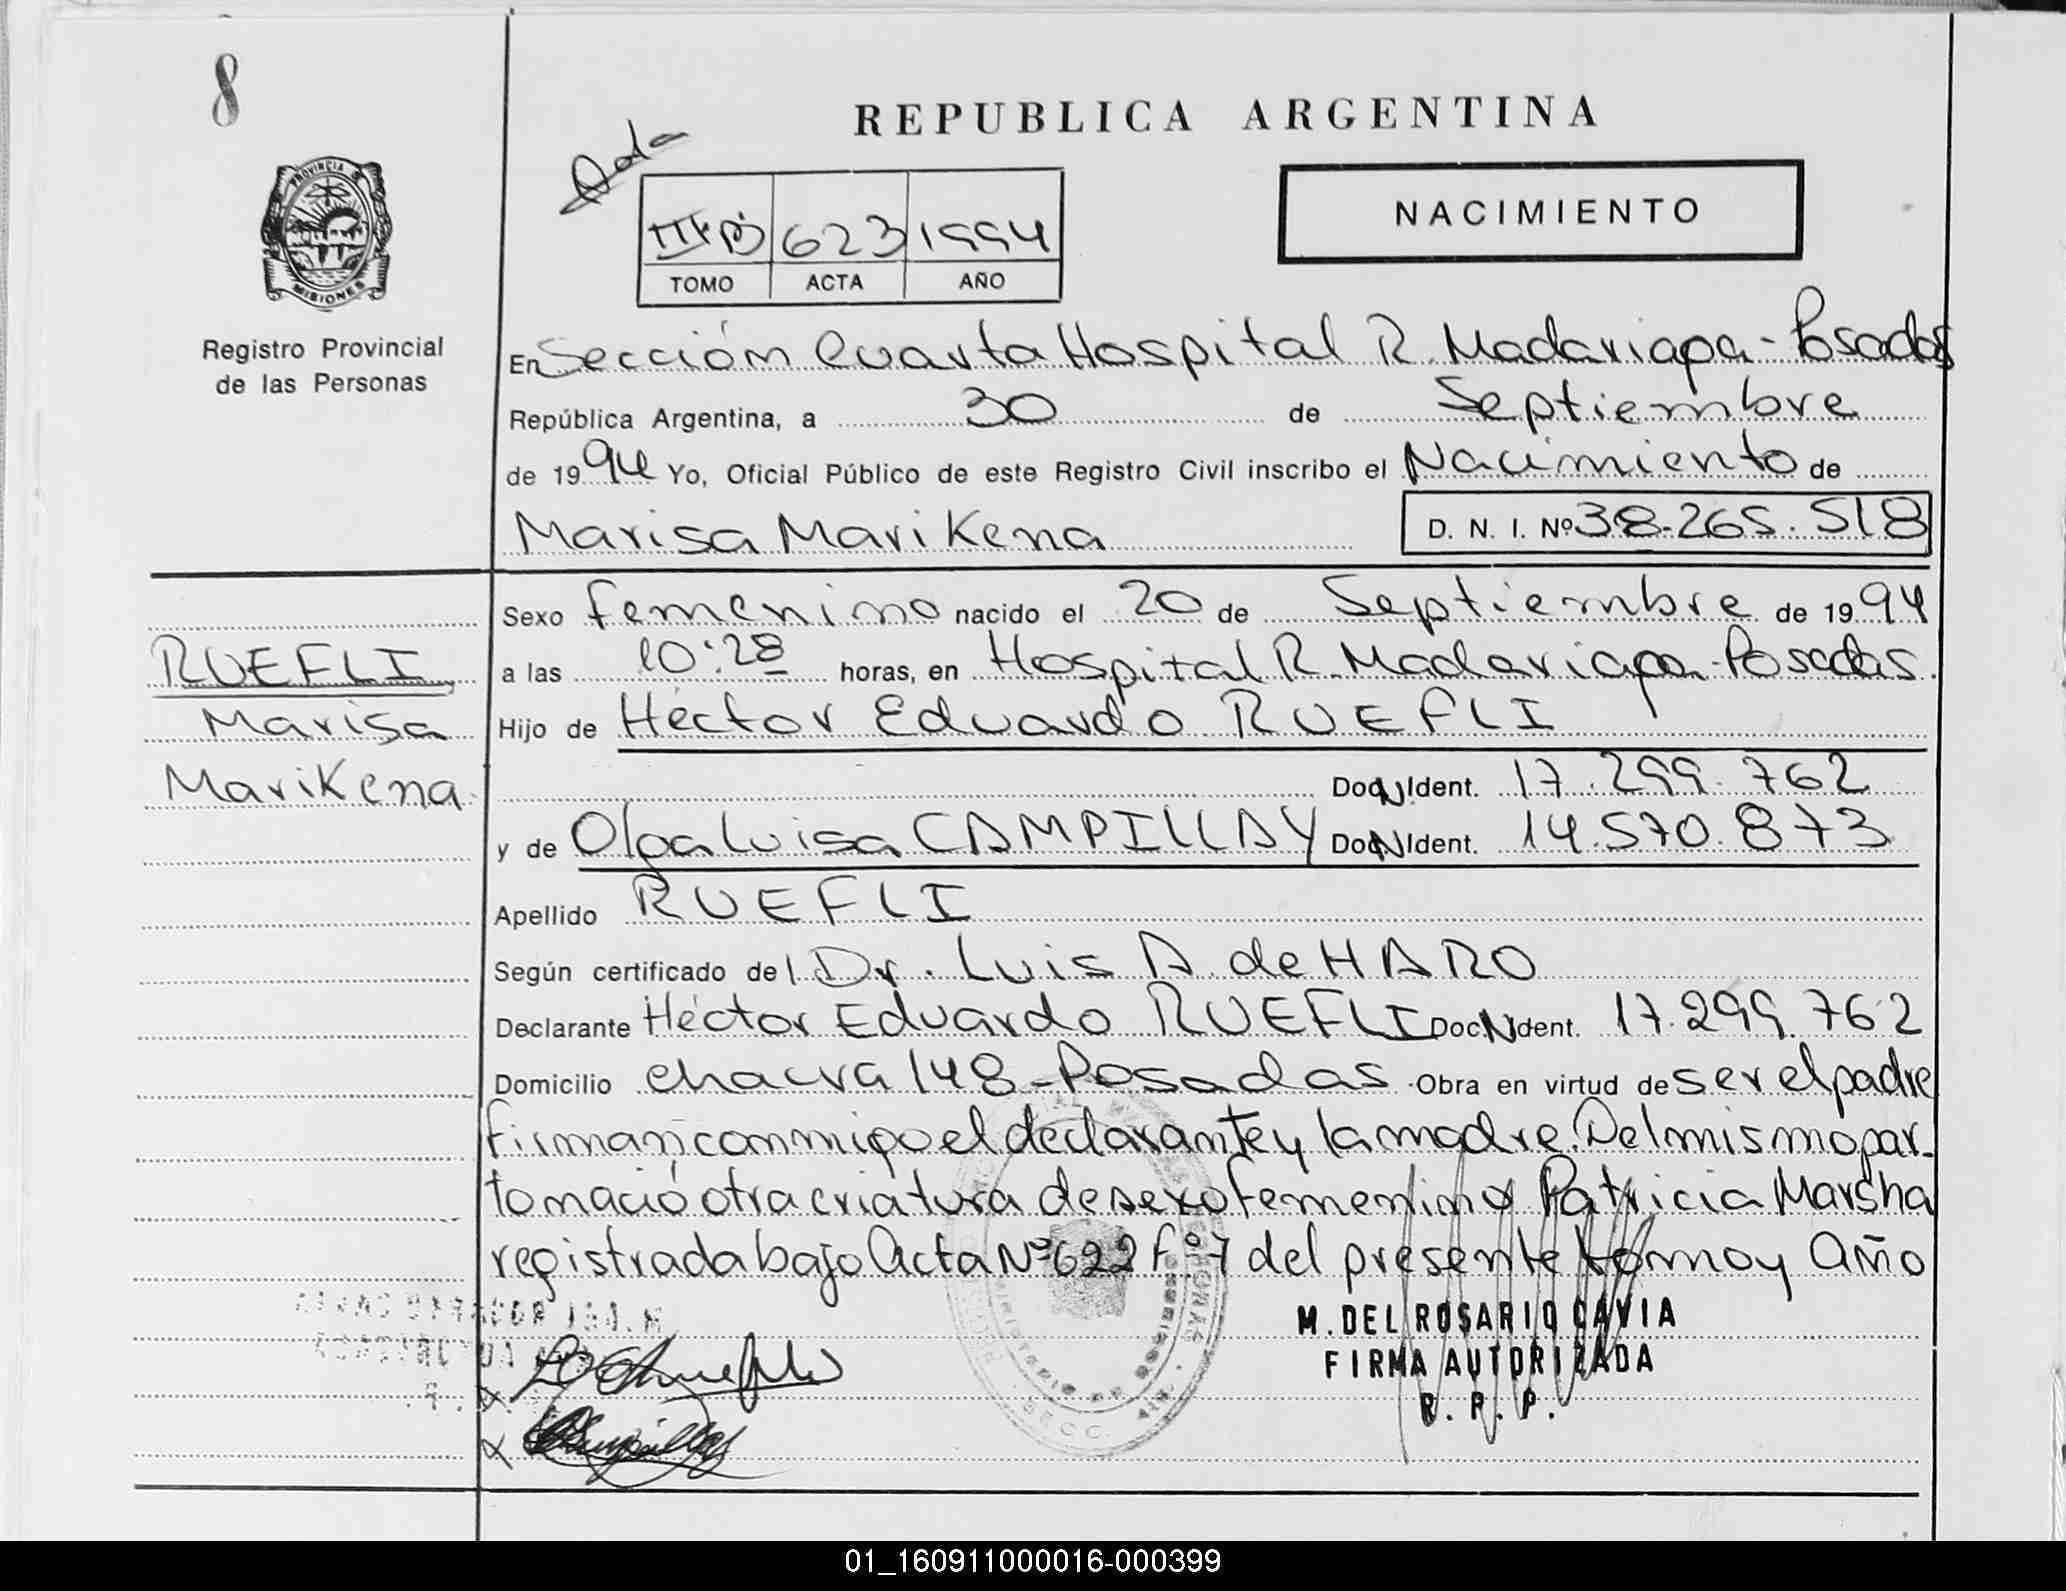 8
REPUBLICA ARGENTINA
NACIMIENTO
623 1994
TOMO ACTA AÑO
PROVINCIA DE
MISIONES
Registro Provincial
de las Personas
En Sección Cuarta Hospital R. Madariaga - Posadas
República Argentina, a 30 de Septiembre
de 1994 Yo, Oficial Público de este Registro Civil inscribo el Nacimiento de
Marisa MariKena D. N. I. Nº 38.265.518
Sexo femenino nacido el 20 de Septiembre de 1994
RUEFLI
a las 10:28 horas, en Hospital R. Madariaga - Posadas.
Marisa
Hijo de Héctor Eduardo RUEFLI
MariKena
Doc N Ident. 17.299.762
y de Olga Luisa CAMPILLAY Doc N Ident. 14.570.873
Apellido RUEFLI
Según certificado del Dr. Luis A. de HARO
Declarante Héctor Eduardo RUEFLI Doc N Ident. 17.299.762
Domicilio chacra 148 - Posadas. Obra en virtud de ser el padre
firman conmigo el declarante y la madre. Del mismo par-
to nació otra criatura de sexo femenino Patricia Marsha
registrada bajo Acta Nº 622 Fº 7 del presente tomo y Año
M. DEL ROSARIO CAVIA
FIRMA AUTORIZADA
R. P. P.
01_160911000016-000399